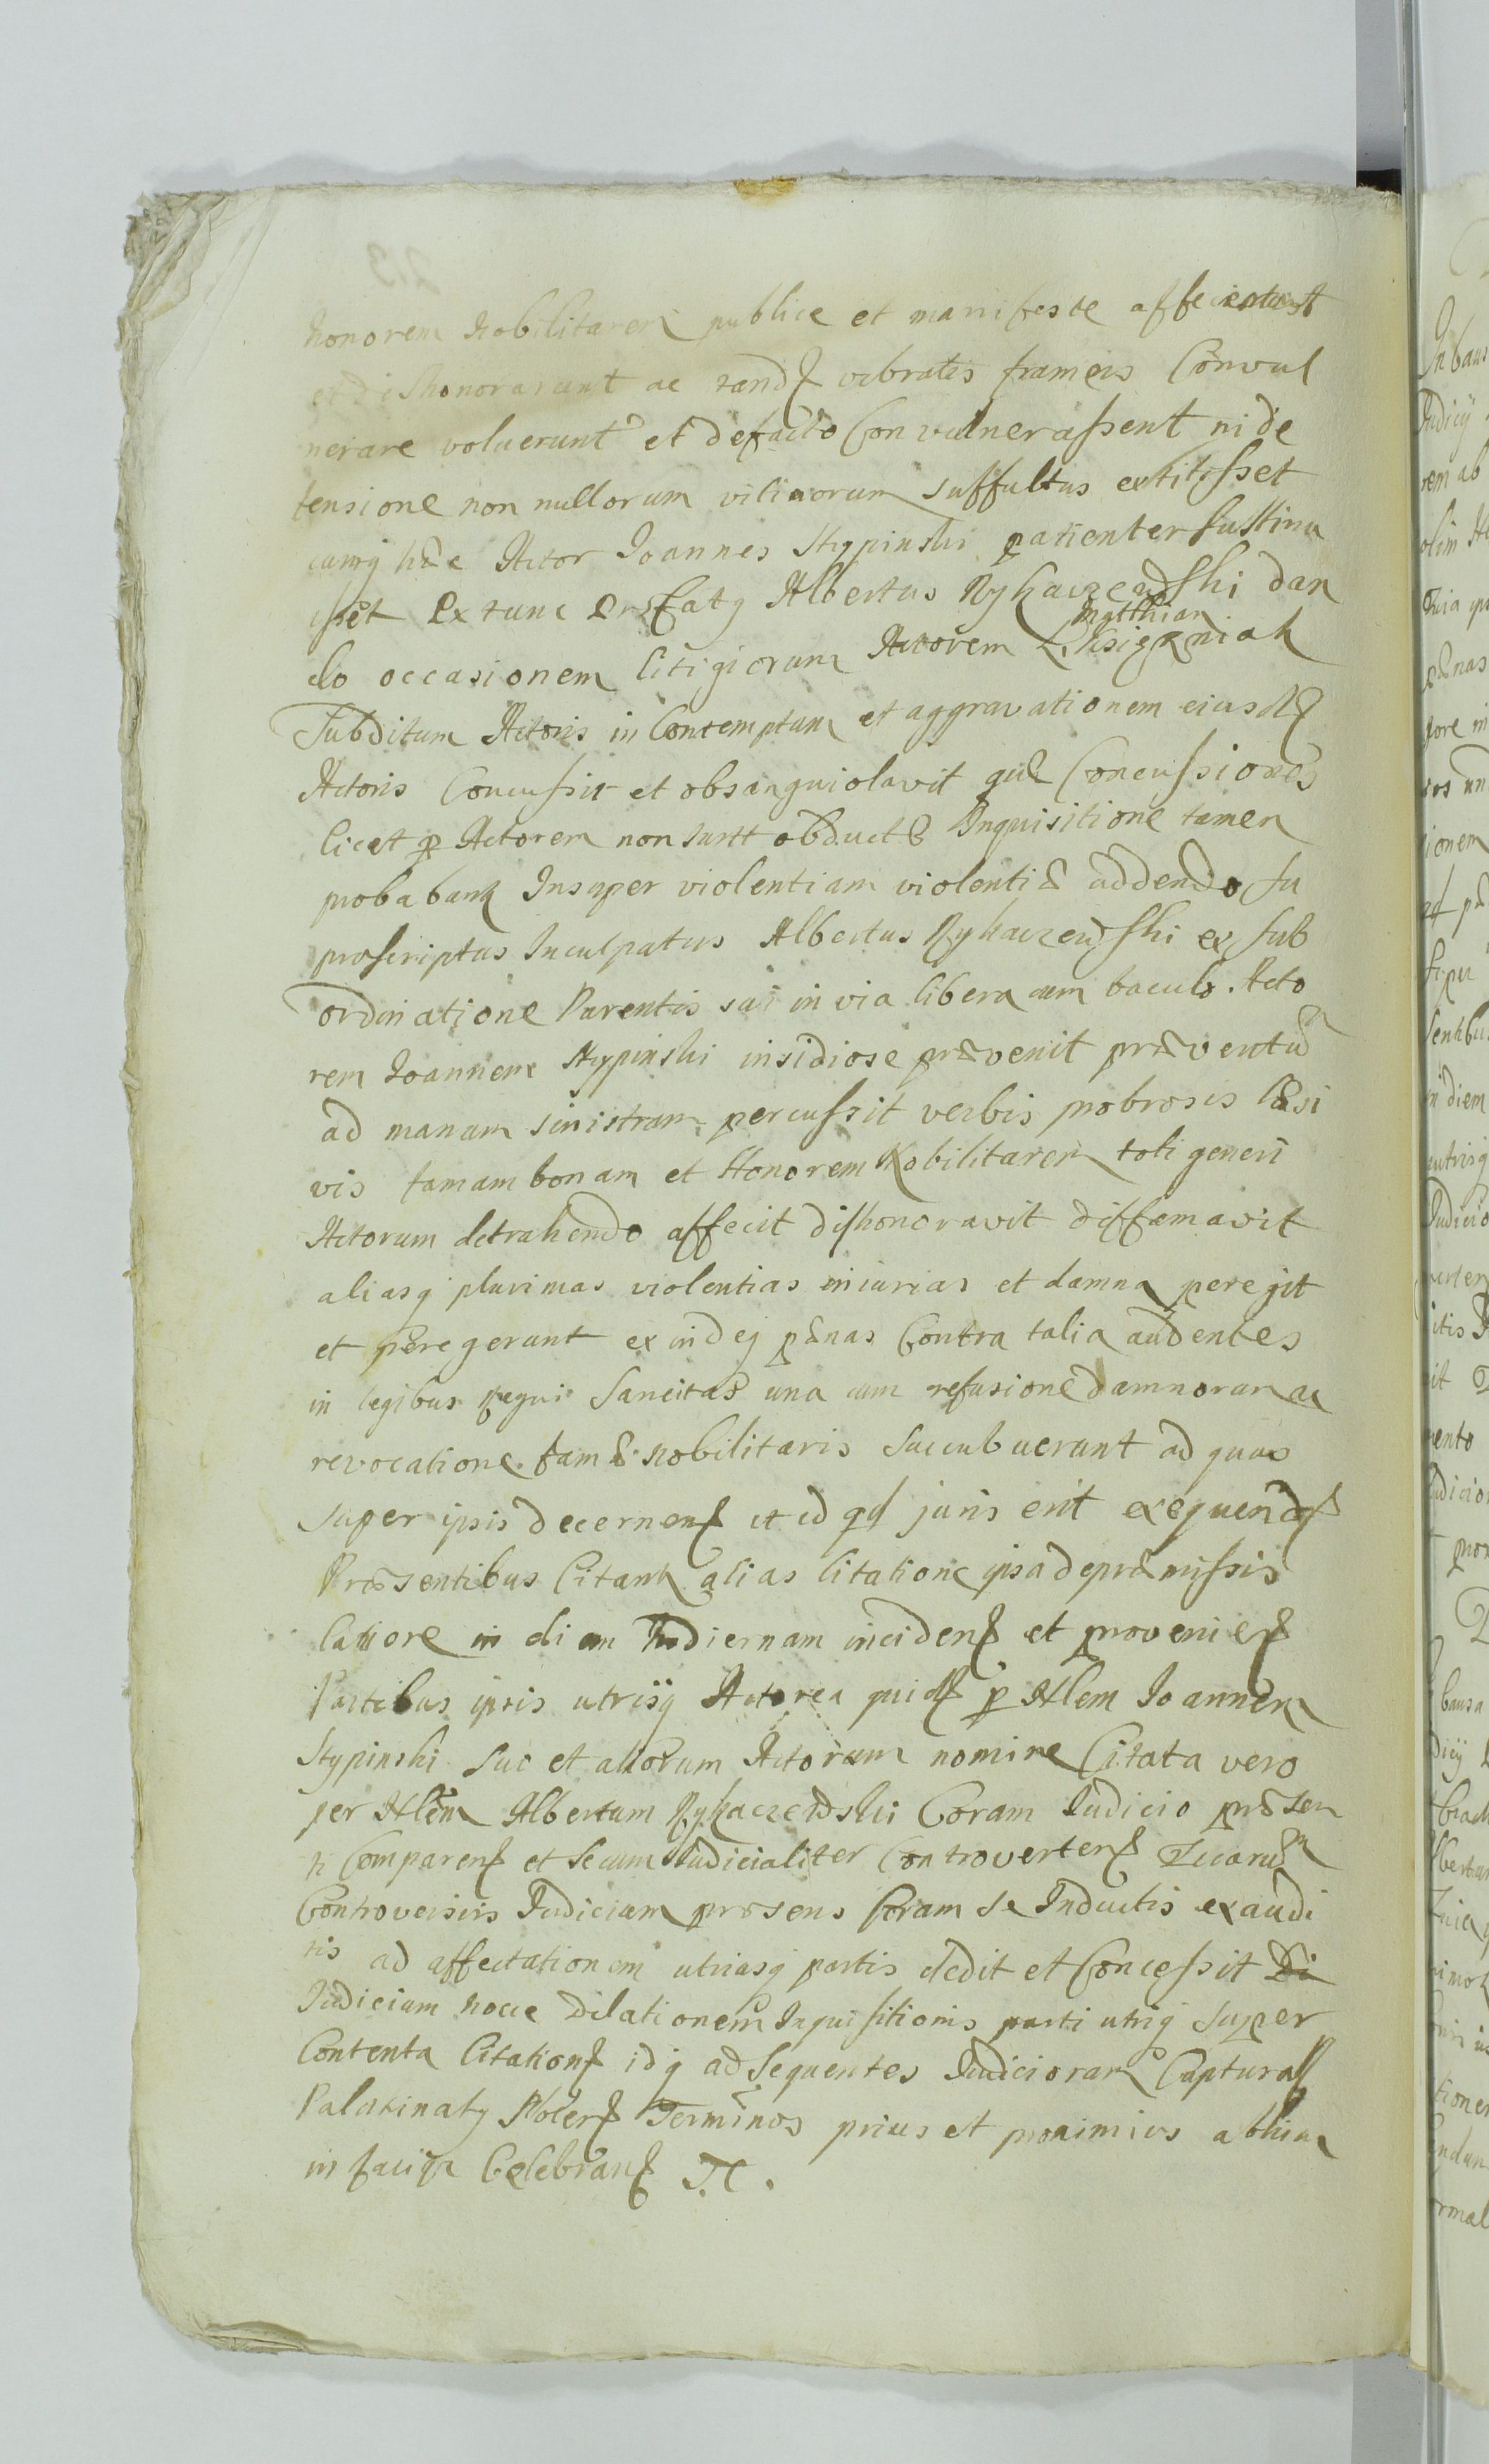 honorem Nobilitarem publice et manifeste affecerunt
et dishonorarunt ac tandẽ vibratis frameis Convul
nerare voluerunt et defacto Convulnerassent ni de
fensione non nullorum vicinorum suffultus extitisset
cumq hæc Actor Joannes Stypinski patienter sustinu
isset Extunc præfatq Albertus Rykaczewski dan
do occasionem litigiorum Actorem Matthiam Księzniak
Subditum Actoris in Contemptum et aggravationem eiusdẽ
Actoris Concussit et obsanguiolavit quæ Concussiones
licet p Actorem non sunt obductæ Inquisitione tamen
probabunt Insuper violentiam violentiæ addendo su
proscriptus Inculpatus Albertus Rykaczewski ex sub
ordinatione Parentis sui in via libera cum baculo Acto
rem Joannem Stypinski insidiose prævenit præventũ
ad manum sinistram percussit verbis probrosis læsi
vis famam bonam et Honorem Nobilitarem toti generi
Actorum detrahendo affecit dishonoravit diffamavit
aliasq plurimas violentias iniurias et damna peregit
et peregerunt ex indeq pænas Contra talia audentes
in legibus Regni Sancitas una cum refusione damnorum ac
revocatione famæ Nobilitaris succubuerunt ad quas
super ipsis decernen et id qd juris erit exequend
Præsentibus Citant alias Citatione ipsa de præmissis
latiore in diem hodiernam inciden et provenien
Partibus ipsis utrisq Actorea quidẽ p Nlem Joannem
Stypinski suo et aliorum Actorum nomine Citata vero
per Nlem Albertum Rykaczewski Coram Judicio præsen
ti Comparen et secum Judicialiter Controverten Quarũ
Controversiis Judicium præsens Coram se Inductis exaudi
tis ad affectationem utriusq partis dedit et Concessit Di
Judicium hocce Dilationem Inquisitionis parti utriq super
Contenta Citation idq ad sequentes Judiciorum Captural
Palatinatq Terminos prius et proximius abhinc
in Celebran